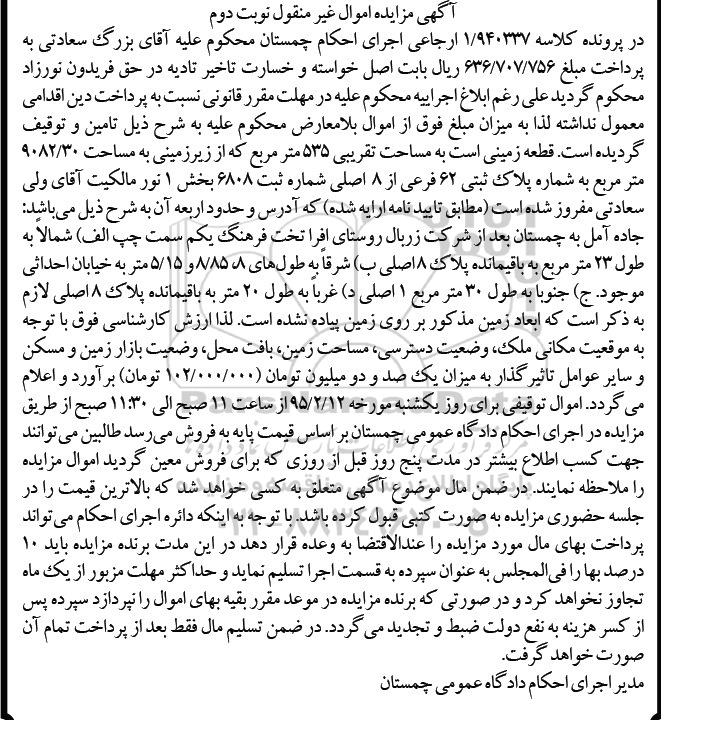 آگهی مزایده اموال غیر منقول نوبت دوم
در پرونده کلاسه ۱/۹۴۰۳۳۷ ارجاعی اجرای احکام چمستان محکوم علیه آقای بزرگ سعادتی به
پرداخت مبلغ ۶۳۶/۷۰۷/۷۵۶ ریال بابت اصل خواسته و خسارت تاخیر تادیه در حق فریدون نورزاد
محکوم گردید علی رغم ابلاغ اجراییه محکوم علیه در مهلت مقرر قانونی نسبت به پرداخت دین اقدامی
معمول نداشته لذا به میزان مبلغ فوق از اموال بلامعارض محکوم علیه به شرح ذیل تامین و توقیف
گردیده است. قطعه زمینی است به مساحت تقریبی ۵۳۵ متر مربع که از زیرزمینی به مساحت ۹۰۸۲/۳۰
متر مربع به شماره پلاک ثبتی ۶۲ فرعی از ۸ اصلی شماره ثبت ۶۸۰۸ بخش ۱ نور مالکیت آقای ولی
سعادتی مفروز شده است (مطابق تایید نامه ارایه شده) که آدرس و حدود اربعه آن به شرح ذیل می‌باشد:
جاده آمل به چمستان بعد از شرکت زربال روستای افرا تخت فرهنگ یکم سمت چپ الف) شمالاً به
طول ۲۳ متر مربع به باقیمانده پلاک ۸اصلی ب) شرقاً به طول‌های ۸، ۸/۸۵ و ۵/۱۵ متر به خیابان احداثی
موجود. ج) جنوبا به طول ۳۰ متر مربع ۱ اصلی د) غرباً به طول ۲۰ متر به باقیمانده پلاک ۸ اصلی لازم
به ذکر است که ابعاد زمین مذکور بر روی زمین پیاده نشده است. لذا ارزش کارشناسی فوق با توجه
به موقعیت مکانی ملک، وضعیت دسترسی، مساحت زمین، بافت محل، وضعیت بازار زمین و مسکن
و سایر عوامل تاثیر گذار به میزان یک صد و دو میلیون تومان (۱۰۲/۰۰۰/۰۰۰ تومان) برآورد و اعلام
می‌گردد. اموال توقیفی برای روز یکشنبه مورخه ۹۵/۲/۱۲ از ساعت ۱۱ صبح الی ۱۱:۳۰ صبح از طریق
مزایده در اجرای احکام دادگاه عمومی چمستان بر اساس قیمت پایه به فروش می‌رسد طالبین می‌توانند
جهت کسب اطلاع بیشتر در مدت پنج روز قبل از روزی که برای فروش معین گردید اموال مزایده
را ملاحظه نمایند. در ضمن مال موضوع آگهی متعلق به کسی خواهد شد که بالاترین قیمت را در
جلسه حضوری مزایده به صورت کتبی قبول کرده باشد. با توجه به اینکه دائره اجرای احکام می‌تواند
پرداخت بهای مال مورد مزایده را عندالاقتضا به وعده قرار دهد در این مدت برنده مزایده باید ۱۰
درصد بها را فی‌المجلس به عنوان سپرده به قسمت اجرا تسلیم نماید و حداکثر مهلت مزبور از یک ماه
تجاوز نخواهد کرد و در صورتی که برنده مزایده در موعد مقرر بقیه بهای اموال را نپردازد سپرده پس
از کسر هزینه به نفع دولت ضبط و تجدید می‌گردد. در ضمن تسلیم مال فقط بعد از پرداخت تمام آن
صورت خواهد گرفت.
مدیر اجرای احکام دادگاه عمومی چمستان